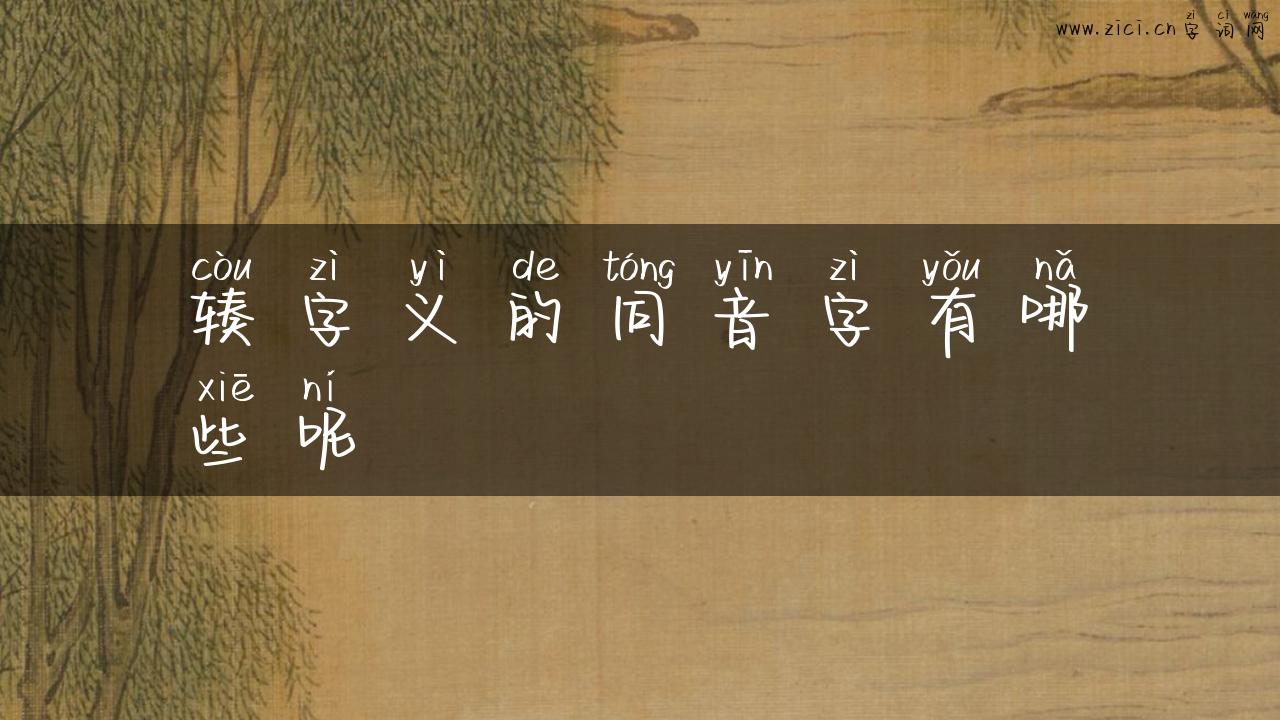 zì cí wǎng
www.zici.cn字词网
còu zì yì de tóng yīn zì yǒu nǎ
辏字义的同音字有哪
xiē ní
些呢